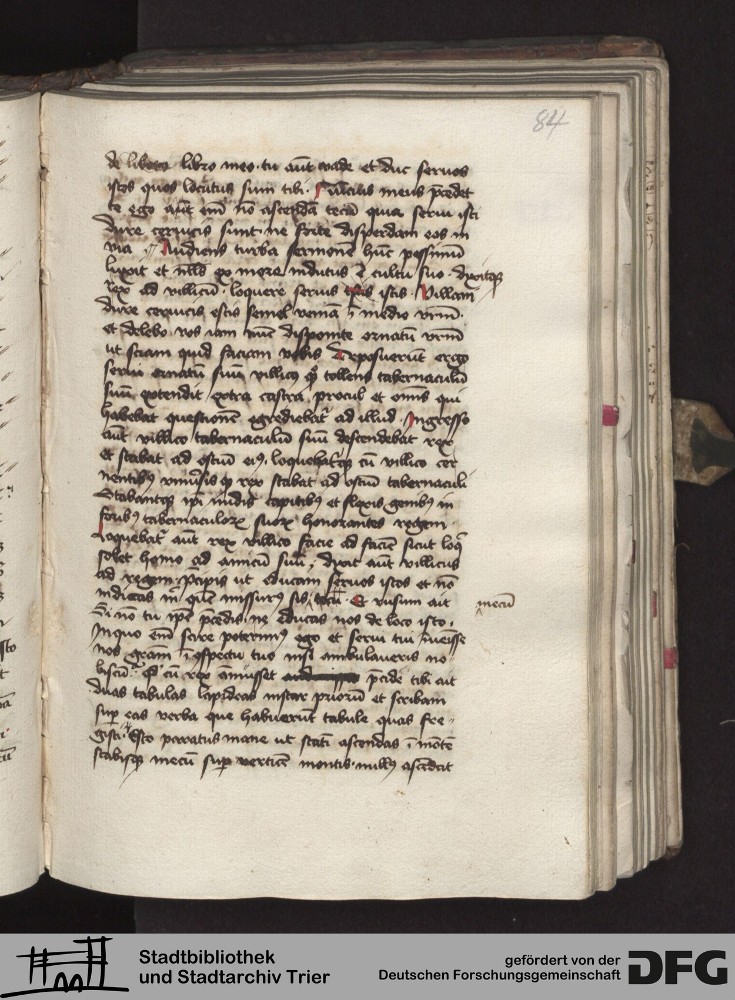 84
de libeto libro meo. tu aūt vade et duc servos
istos quos locutus sum tibi. Aūcilis meus p̄cedet
te ego aūt em̄ nō ascendā tecū quia servi isti
dure cervicis sunt. ne forte disperdam eos in
via Audiens turba sermonē hūc pessimū
luxit et nlls ex more indutus ē cultu suo. dixitqꝫ
rex ad villicū. loquere servis istis. Villani
dure cervicis estis semel veniā ī medio vr̄m.
et delebo vos iam nūc disponite ornatū vr̄m
ut sciam quid faciam vobis Deposuerūt ergo
servi ornatū suū villicꝰ qꝫ tollens tabernaculū
suū extendit extra castra procul et omīs qui
habebat questionē egrediebat̄ ad illud. Ingresso
aūt villico tabernaculū suū descendebat rex
et stabat ad ostiū eiꝰ. loquebat̄qꝫ cū villico cer
nentibꝰ univ̄sis qꝫ rex stabat ad ostiū tabernaculi
Stabantqꝫ ip̄i nudis capitibꝰ et flexis genibꝰ in
foribꝰ tabernaculoꝝ suoꝝ honorantes regem.
Loquebat̄ aūt rex villico facie ad faciē sicut loq̄
solet homo ad amicū suū. dixit aūt villicus
ad regem. p̄cipis ut educam servos istos et nō
indicas m̄ quē missurꝰ sis tecū. Et rursum ait mecū
Si nō tu ip̄e p̄cedis. ne educas nos de loco isto.
In quo em̄ scire poterimꝰ ego et servi tui īvenisse
nos grām ī ꝯspectu tuo nisi ambulaveris no
biscū. Qd̄ cū rex āmisset p̄cide tibi ait
duas tabulas lapideas instar priorū et scribam
sup̄ eas verba que habuerūt tabule quas fre
gisti. Esto paratus mane ut statī ascendas ī mōtē
stabisqꝫ mecū sup̄ verticē montis. nullꝰ ascēdat
Stadtbibliothek
und Stadtarchiv Trier
gefördert von der
Deutschen Forschungsgemeinschaft
DFG